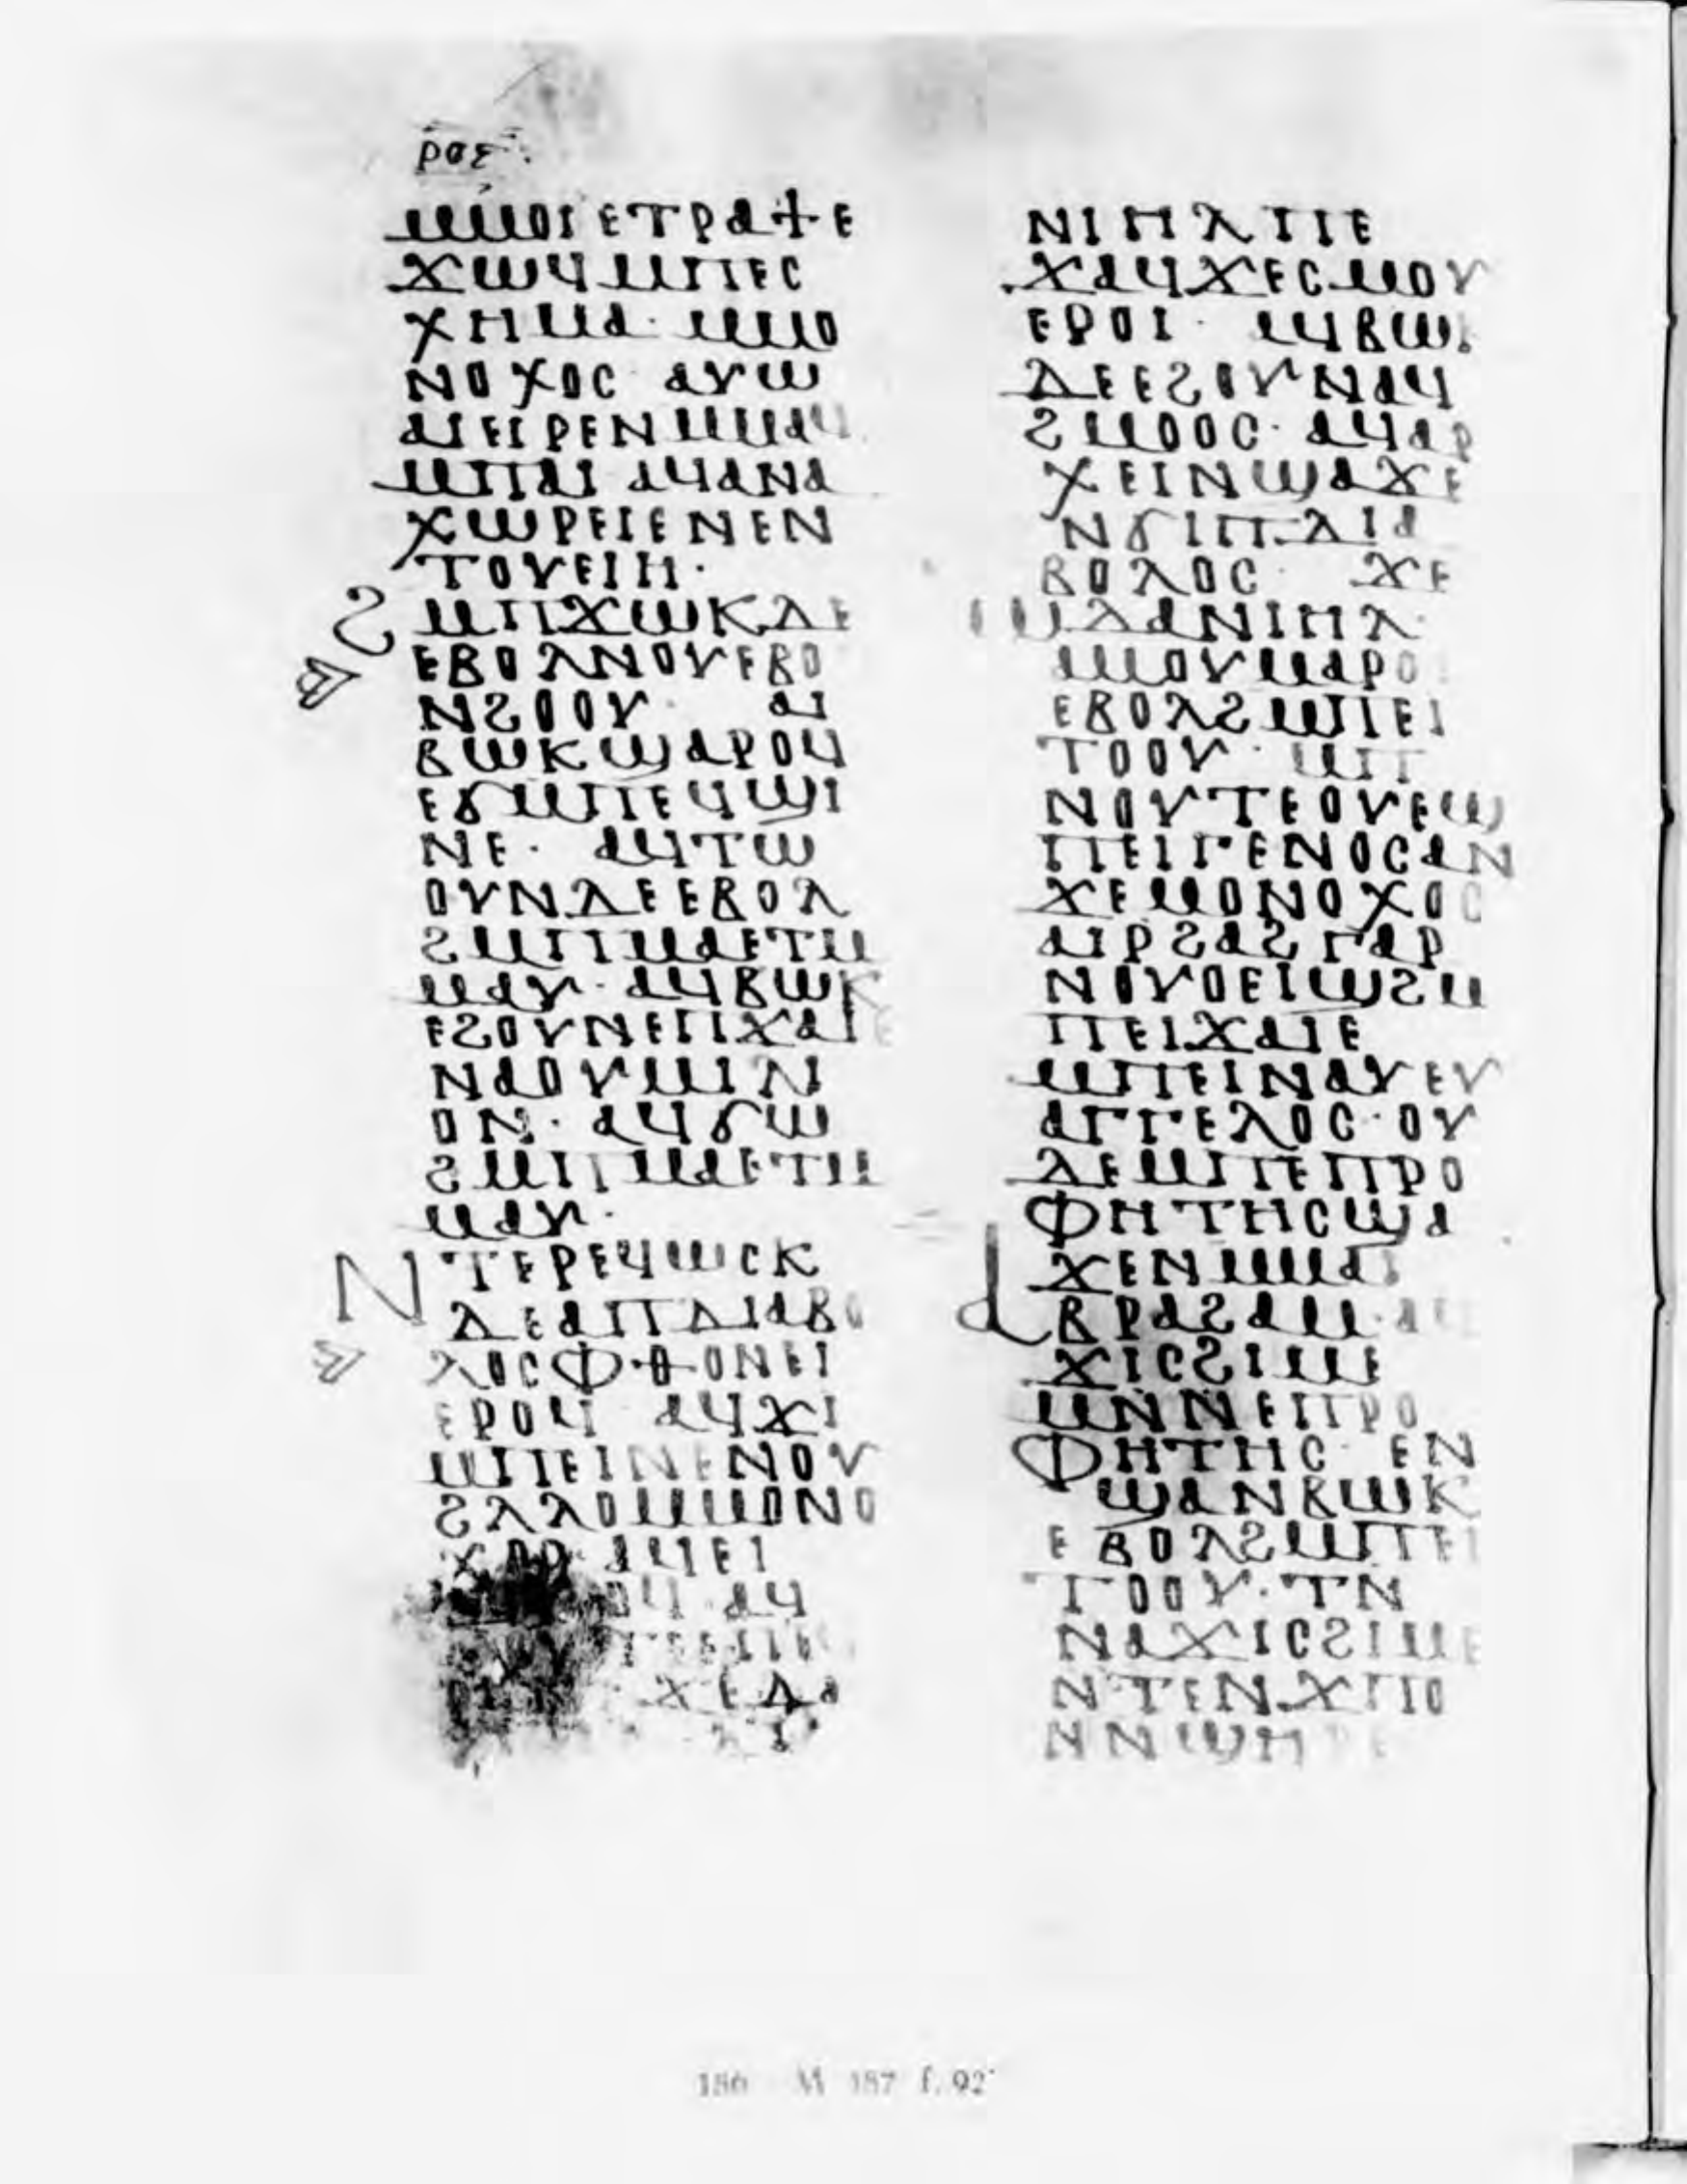 ⲣⲟⲋ
ⲙⲙⲟⲓ ⲉⲧⲣⲁϯⲉ
ϫⲱϥ ⲙⲡⲉⲥ
ⲭⲏⲙⲁ · ⲙⲙⲟ
ⲛⲟⲭⲟⲥ ⲁⲩⲱ
ⲁⲓⲉⲓⲣⲉⲛⲙⲙⲁϥ
ⲙⲡⲁⲓ ⲁϥⲁⲛⲁ
ⲭⲱⲣⲉⲓⲉⲛⲉⲛ
ⲧⲟⲩⲉⲓⲏ ·
ϩⲙⲡϫⲱⲕⲇⲉ
ⲉⲃⲟⲗⲛⲟⲩⲉⲃⲟ
ⲛϩⲟⲟⲩ · ⲁⲓ
ⲃⲱⲕϣⲁⲣⲟϥ
ⲉϭⲙⲡⲉϥϣⲓ
ⲛⲉ · ⲁϥⲧⲱ
ⲟⲩⲛⲇⲉⲉⲃⲟⲗ
ϩⲙⲡⲙⲁⲉⲧⲙ
ⲙⲁⲩ · ⲁϥⲃⲱⲕ
ⲉϩⲟⲩⲛⲉⲡϫⲁⲓⲉ
ⲛⲁⲟⲩⲙⲓⲗⲓ
ⲟⲛ · ⲁϥϭⲱ
ϩⲙⲡⲙⲁⲉⲧⲙ
ⲙⲁⲩ ·
ⲛⲧⲉⲣⲉϥⲱⲥⲕ
ⲇⲉⲁⲡⲇⲓⲁⲃⲟ
ⲗⲟⲥⲫⲑⲟⲛⲉⲓ
ⲉⲣⲟϥ ⲁϥϫⲓ
ⲙⲡⲉⲓⲛⲉⲛⲟⲩ
ϩⲗⲗⲟⲙⲙⲟⲛⲟ
ⲭⲟⲥ · ⲁϥⲉⲓ
ⲁϥ
ϫⲉⲇⲁ
ⲛⲓⲏⲗⲡⲉ
ϫⲁϥϫⲉⲥⲙⲟⲩ
ⲉⲣⲟⲓ · ⲁϥⲃⲱⲕ
ⲇⲉⲉϩⲟⲩⲛⲁϥ
ϩⲙⲟⲟⲥ · ⲁϥⲁⲣ
ⲭⲉⲓⲛϣⲁϫⲉ
ⲛϭⲓⲡⲇⲓⲁ
ⲃⲟⲗⲟⲥ · ϫⲉ
ⲱⲇⲁⲛⲓⲏⲗ ·
ⲁⲙⲟⲩⲙⲁⲣⲟ
ⲉⲃⲟⲗϩⲙⲡⲉⲓ
ⲧⲟⲟⲩ · ⲙⲡ
ⲛⲟⲩⲧⲉⲟⲩⲉϣ
ⲡⲉⲓⲅⲉⲛⲟⲥⲁⲛ
ϫⲉⲙⲟⲛⲟⲭⲟⲥ
ⲁⲓⲣϩⲁϩ ⲅⲁⲣ
ⲛⲟⲩⲟⲉⲓϣϩⲙ
ⲡⲉⲓϫⲁⲓⲉ
ⲙⲡⲉⲓⲛⲁⲩⲉⲩ
ⲁⲅⲅⲉⲗⲟⲥ · ⲟⲩ
ⲇⲉⲙⲡⲉⲡⲣⲟ
ⲫⲏⲧⲏⲥϣⲁ
ϫⲉⲛⲙⲙⲁⲓ
ⲁⲃⲣⲁϩⲁⲙ ·
ϫⲓⲥϩⲓⲙⲉ
ⲙⲛⲛⲉⲡⲣⲟ
ⲫⲏⲧⲏⲥ · ⲉⲛ
ϣⲁⲛⲃⲱⲕ
ⲉⲃⲟⲗϩⲙⲡⲉⲓ
ⲧⲟⲟⲩ · ⲧⲛ
ⲛⲁϫⲓⲥϩⲓⲙⲉ
ⲛⲧⲉⲛϫⲡⲟ
ⲛⲛϣⲏⲣⲉ
186 M 587 f. 92ᵛ